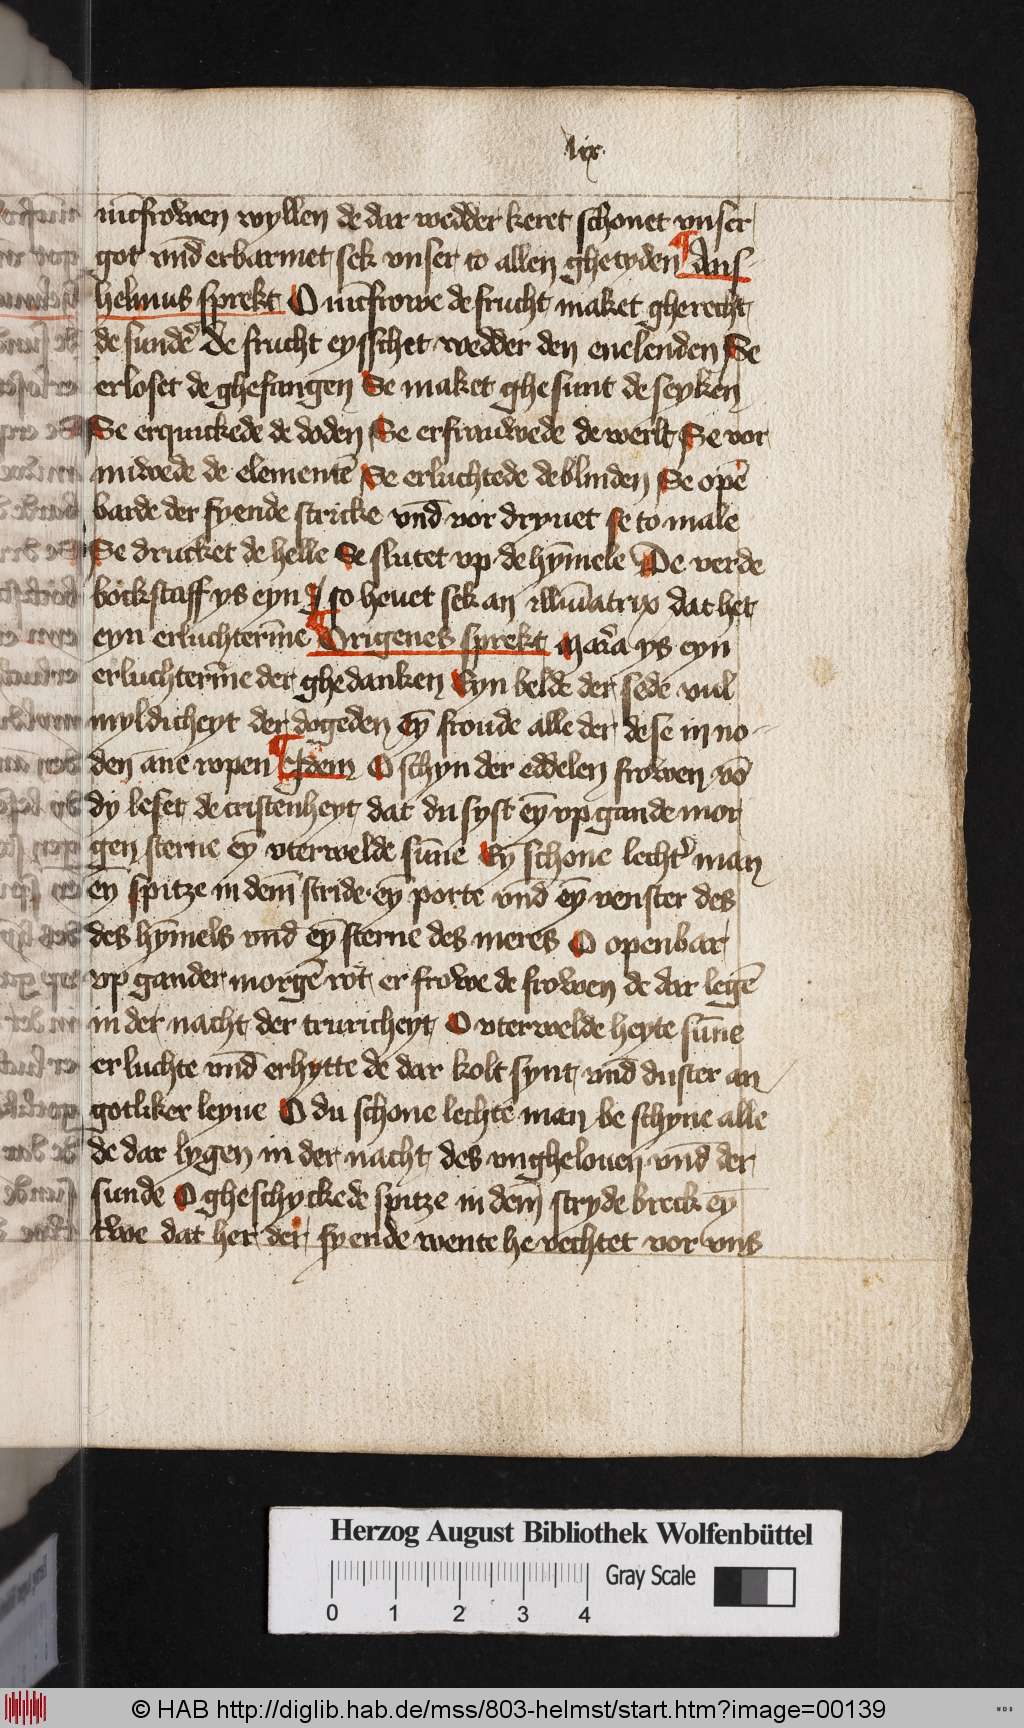 lix
iūcfrowen wyllen de dar wedder keret schonet vnser
got vnd erbarmet sek vnser to allen ghetyden Ans-
helmus sprekt O iūcfrowe de frucht maket gherecht
de sundē De frucht eysschet wedder den enelenden Se
erloset de ghefangen Se maket ghesunt de seyken
Se erquickede de doden Se erfrauwede de werlt Se vor
niwede de elementē Se erluchtede de blinden Se opē
barde der fyende stricke vnd vor dryuet se to male
Se drucket de helle Se slutet vp de hȳmele De verde
bockstaff ys eyn I so heuet sek an illuīatrix dat het
eyn erluchterīne Origenes sprekt Maria ys eyn
erluchterīne der ghedanken Eyn belde der sede vul
myldicheyt der dogeden eȳ froude alle der de se in no-
den ane ropen Idem O schyn der eddelen frowen vō
dy leset de cristenheyt dat du syst eȳ vp gande mor
gen sterne eȳ vterwelde sūne Eȳ schone lecht man
eȳ spitze in dem stride eȳ porte vnd eȳ venster des
des hȳmels vnd eȳ sterne des meres O openbar
vp gander morgē rot er frowe de frowen de dar legē
in der nacht der truricheyt O vterwelde heyte sūne
erluchte vnd erhytte de dar kolt synt vnd duster an
gotliker leyue O du schone lechte man be schyne alle
de dar lygen in der nacht des vnghelouen vnd der
sunde O gheschyckede spitze in dem stryde breck eȳ
twe dat her der fyende wente he vechtet vor vns
Herzog August Bibliothek Wolfenbüttel
Gray Scale
0 1 2 3 4
© HAB http://diglib.hab.de/mss/803-helmst/start.htm?image=00139